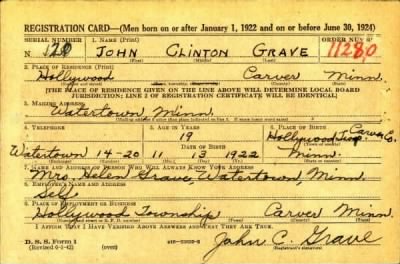 REGISTRATION CARD—(Men born on or after January 1, 1922 and on or before June 30, 1924)
SERIAL NUMBER 1. NAME (Print) ORDER NUMBER
N 120 JOHN CLINTON GRAVE 11280
(First) (Middle) (Last)
2. PLACE OF RESIDENCE (Print)
Hollywood Carver Minn.
[THE PLACE OF RESIDENCE GIVEN ON THE LINE ABOVE WILL DETERMINE LOCAL BOARD
JURISDICTION; LINE 2 OF REGISTRATION CERTIFICATE WILL BE IDENTICAL]
3. MAILING ADDRESS
Watertown Minn.
4. TELEPHONE 5. AGE IN YEARS 6. PLACE OF BIRTH
19 Hollywood Twp. Carver Co.
DATE OF BIRTH
Watertown 14-20 11 13 1922 Minn.
7. NAME AND ADDRESS OF PERSON WHO WILL ALWAYS KNOW YOUR ADDRESS
Mrs. Helen Grave, Watertown, Minn.
8. EMPLOYER'S NAME AND ADDRESS
Self
9. PLACE OF EMPLOYMENT OR BUSINESS
Hollywood Township Carver Minn.
I AFFIRM THAT I HAVE VERIFIED ABOVE ANSWERS AND THAT THEY ARE TRUE.
D. S. S. Form 1
(Revised 6-9-42) (over) John C. Grave
(Registrant's signature)